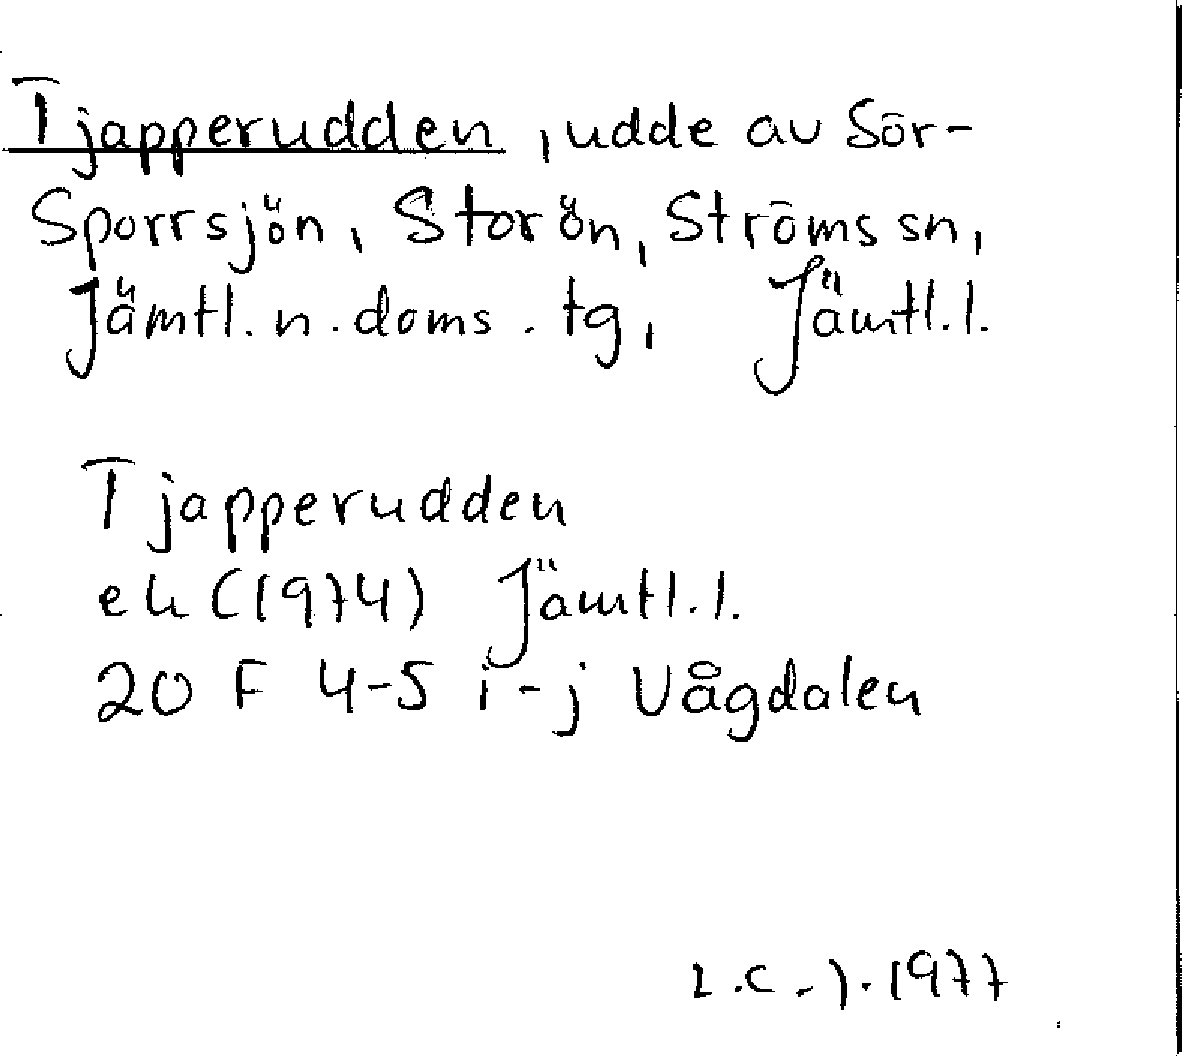 Tjapperudden, udde av Sör-
Sporrsjön, Storön, Ströms sn,
Jämtl. n. doms. tg, Jämtl. l.
Tjapperudden
ek (1974) Jämtl. l.
20 F 4-5 i-j Vågdalen
1977